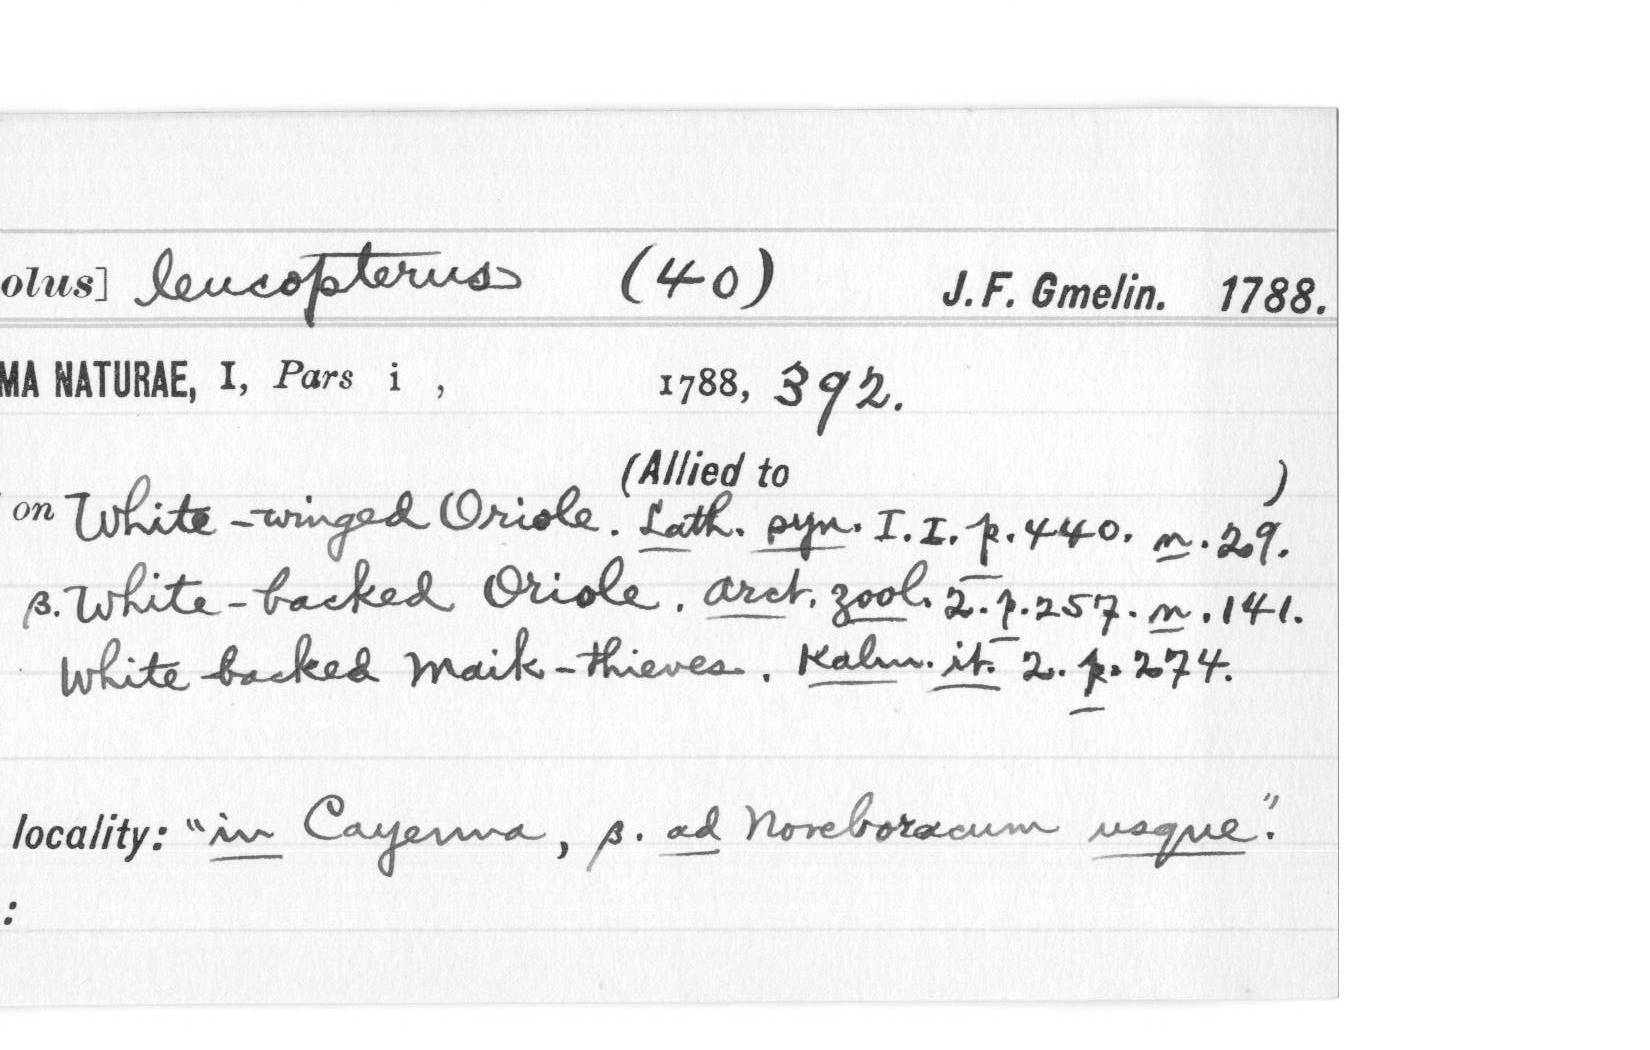 olus] leucopterus (40) J. F. Gmelin. 1788.
MA NATURAE, I, Pars i , 1788, 392.
(Allied to )
on White-winged Oriole. Lath. syn. I. I. p. 440. n. 29.
β. White-backed Oriole. arct. zool. 2. p. 257. n. 141.
White backed Maik-thieves. Kalm. it. 2. p. 274.
locality: "in Cayenna, β. ad Noveboracum usque".
: